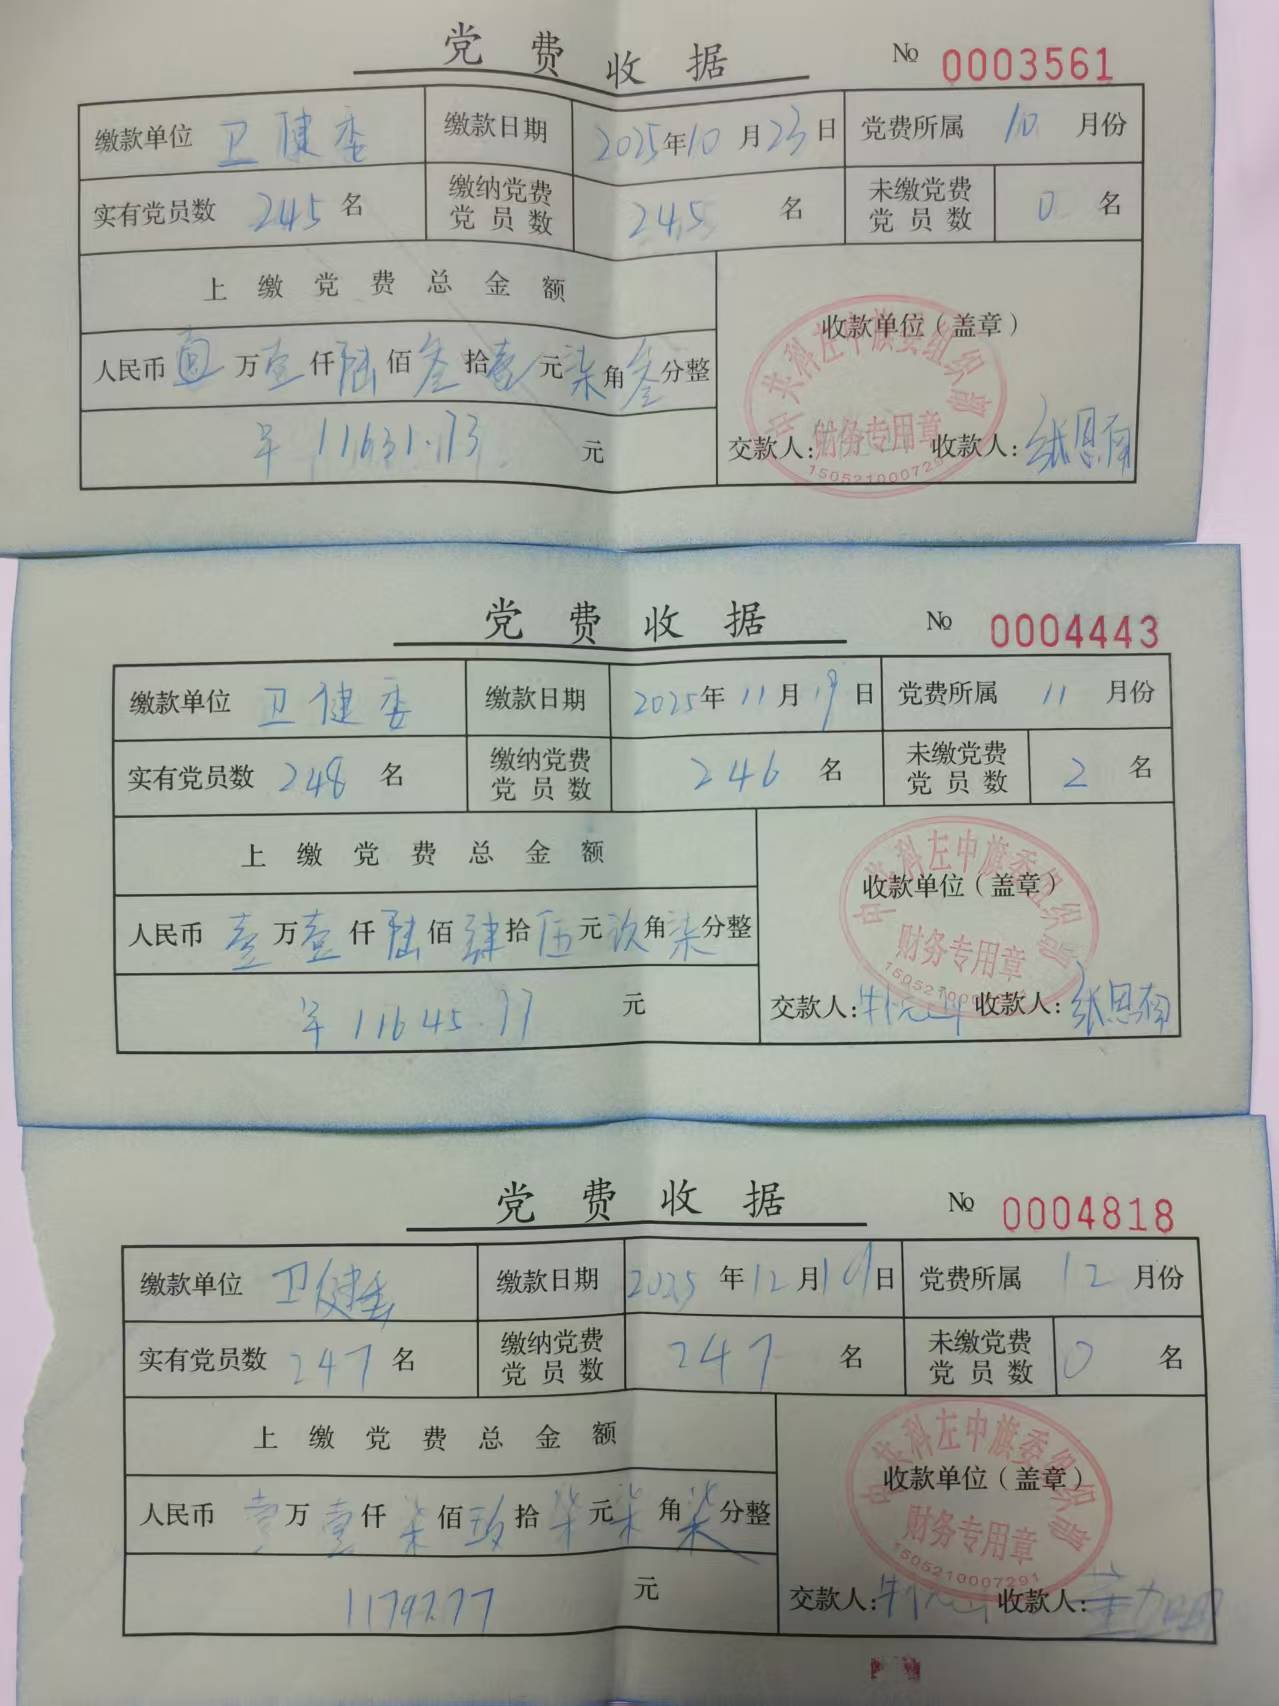 党费收据 № 0003561
缴款单位 卫健委 缴款日期 2025年10月23日 党费所属 10月份
实有党员数 245名 缴纳党费党员数 245名 未缴党费党员数 0名
上缴党费总金额
收款单位（盖章）
人民币 万壹仟陆佰叁拾壹元柒角叁分整
11631.73 元
交款人： 收款人：
中共科左中旗委组织部
财务专用章
党费收据 № 0004443
缴款单位 卫健委 缴款日期 2025年11月19日 党费所属 11月份
实有党员数 248名 缴纳党费党员数 246名 未缴党费党员数 2名
上缴党费总金额
收款单位（盖章）
人民币 壹万壹仟陆佰肆拾伍元 角柒分整
元
交款人： 收款人：
中共科左中旗委组织部
财务专用章
党费收据 № 0004818
缴款单位 卫健委 缴款日期 2025年12月19日 党费所属 12月份
实有党员数 247名 缴纳党费党员数 247名 未缴党费党员数 0名
上缴党费总金额
收款单位（盖章）
人民币 壹万壹仟柒佰玖拾柒元柒角柒分整
11797.77 元
交款人： 收款人：
中共科左中旗委组织部
财务专用章
1505210007291